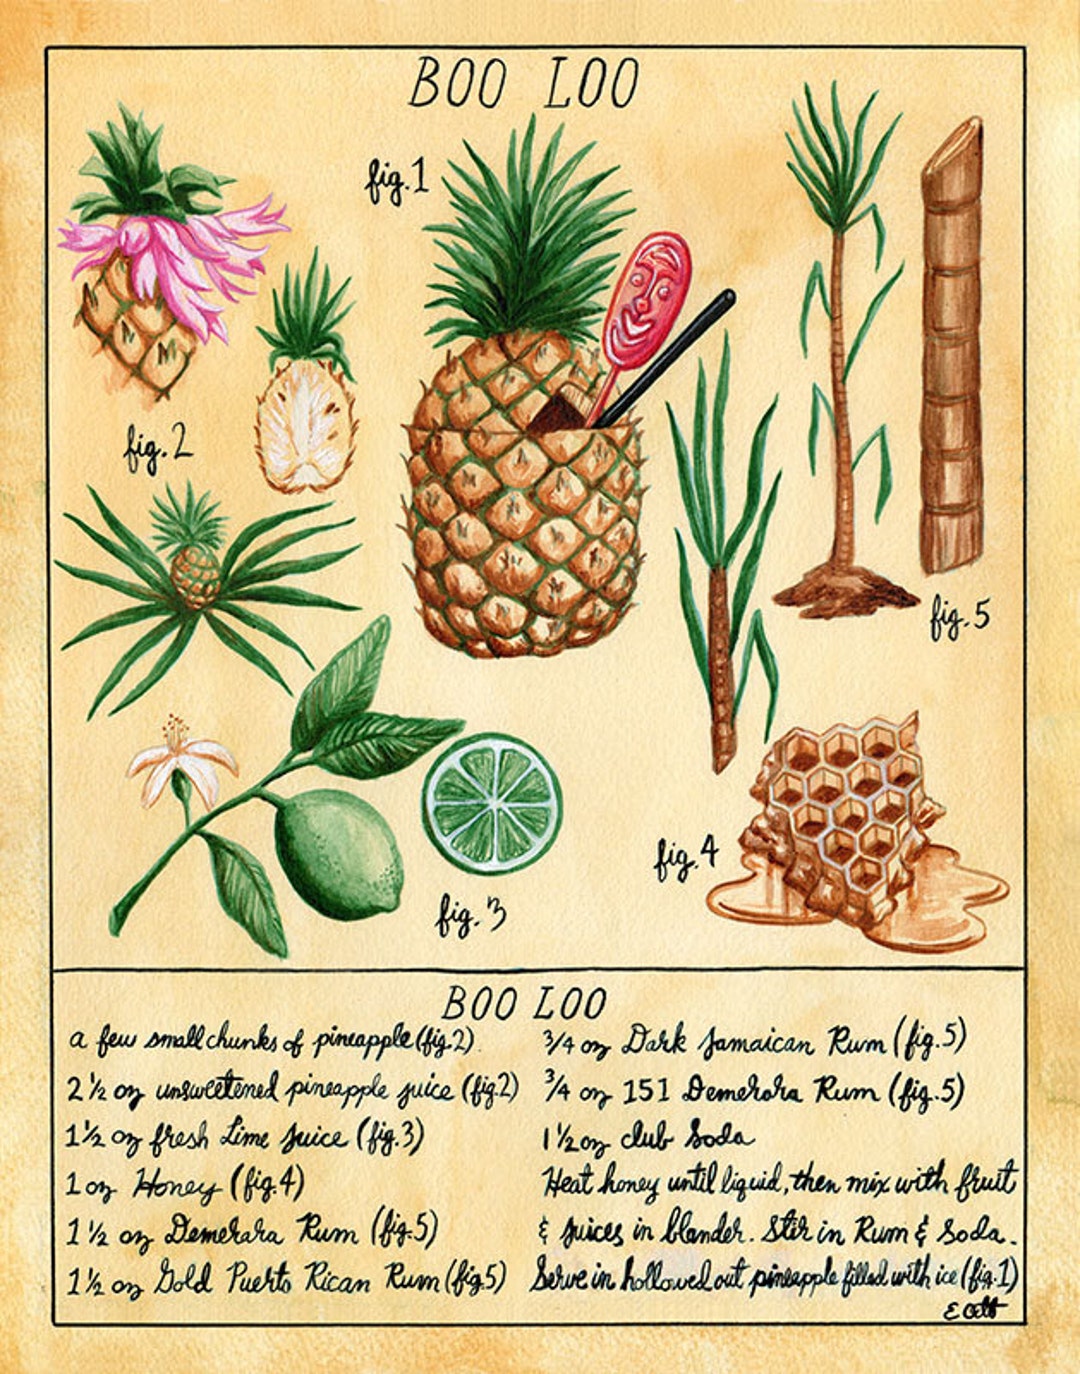 BOO LOO
fig. 1
fig. 2
fig. 5
fig. 4
fig. 3
BOO LOO
a few small chunks of pineapple (fig.2)
2 1/2 oz unsweetened pineapple juice (fig2)
1 1/2 oz fresh Lime Juice (fig.3)
1 oz Honey (fig.4)
1 1/2 oz Demerara Rum (fig.5)
1 1/2 oz Gold Puerto Rican Rum (fig5)
3/4 oz Dark Jamaican Rum (fig.5)
3/4 oz 151 Demerara Rum (fig.5)
1 1/2 oz club Soda
Heat honey until liquid, then mix with fruit
& juices in blender. Stir in Rum & Soda.
Serve in hollowed out pineapple filled with ice (fig.1)